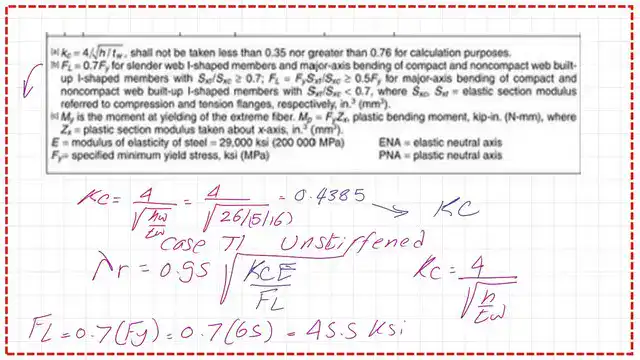 [a] kc = 4/√h/tw, shall not be taken less than 0.35 nor greater than 0.76 for calculation purposes.
[b] FL = 0.7Fy for slender web I-shaped members and major-axis bending of compact and noncompact web built-
up I-shaped members with Sxt/Sxc ≥ 0.7; FL = FySxt/Sxc ≥ 0.5Fy for major-axis bending of compact and
noncompact web built-up I-shaped members with Sxt/Sxc < 0.7, where Sxc, Sxt = elastic section modulus
referred to compression and tension flanges, respectively, in.³ (mm³).
[c] My is the moment at yielding of the extreme fiber. Mp = FyZx, plastic bending moment, kip-in. (N-mm), where
Zx = plastic section modulus taken about x-axis, in.³ (mm³).
E = modulus of elasticity of steel = 29,000 ksi (200 000 MPa) ENA = elastic neutral axis
Fy = specified minimum yield stress, ksi (MPa) PNA = plastic neutral axis
Kc = 4/√hw/tw = 4/√26/(5/16) = 0.4385 → KC
Case TI Unstiffened
λr = 0.95 √KCE/FL Kc = 4/√h/tw
FL = 0.7(Fy) = 0.7(65) = 45.5 Ksi